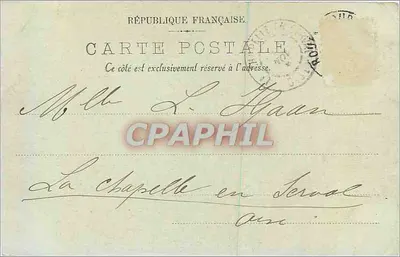 RÉPUBLIQUE FRANÇAISE
CARTE POSTALE
Ce côté est exclusivement réservé à l'adresse.
Mlle L. Haan
CPAPHIL
La Chapelle en Serval
Oise